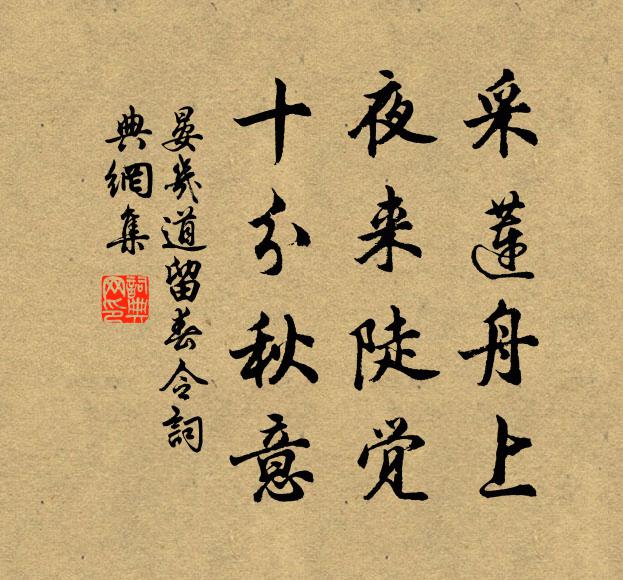 采蓮舟上
夜来陡覚
十分秋意
晏幾道留春令詞
典網集
詞典网印